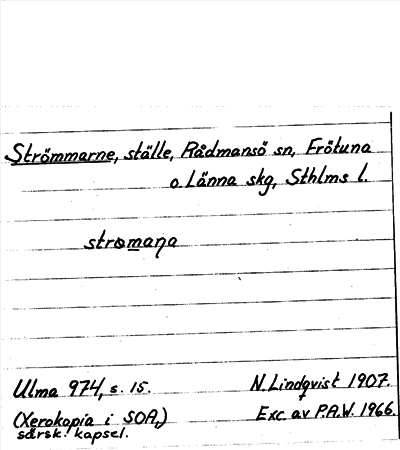 Strömmarne, ställe, Rådmansö sn, Frötuna
o. Länna skg, Sthlms l.
stromaŋa
Ulma 974, s. 15. N. Lindqvist 1907.
(Xerokopia i SOA,) Exc. av P.A.W. 1966.
särsk. kapsel.